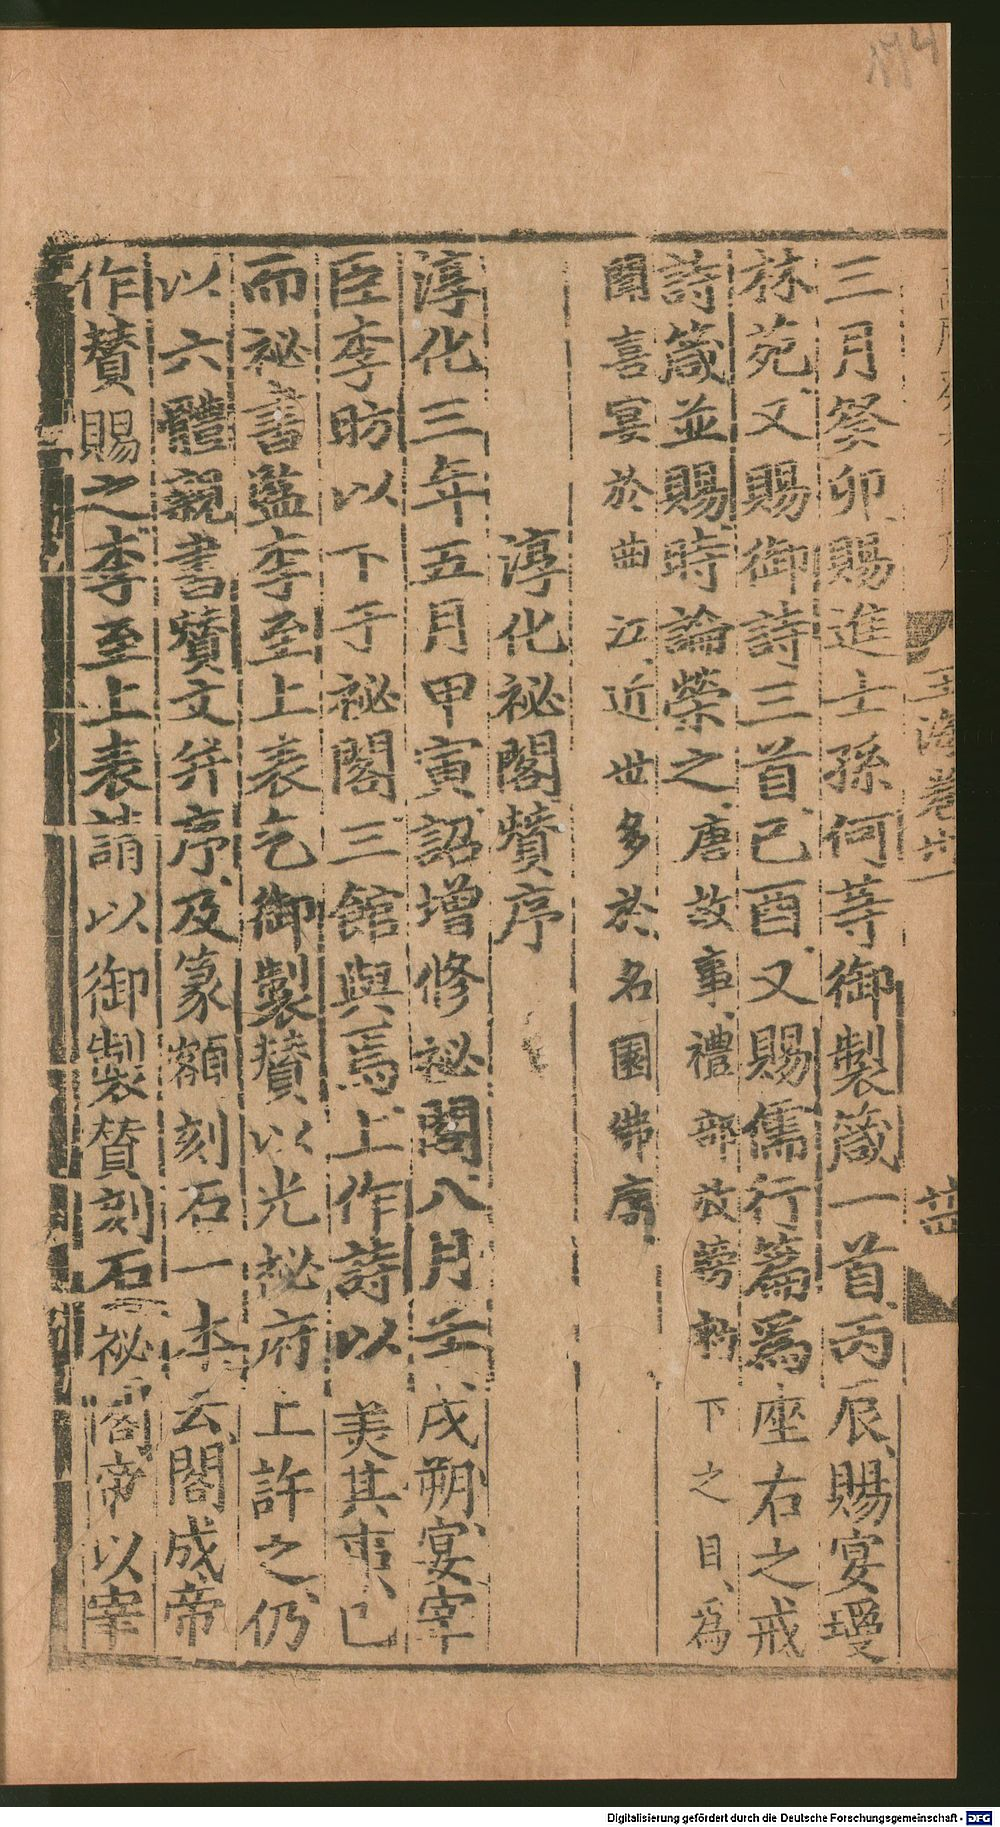 三月癸卯賜進士孫何等御製箴一首丙辰賜宴瓊
林苑又賜御詩三首己酉又賜儒行篇為座右之戒
詩箴並賜時論榮之唐故事禮部放牓勅下之日為
聞喜宴於曲江近世多於名園佛廟
淳化祕閣贊序
淳化三年五月甲寅詔增修祕閣八月壬戌朔宴宰
臣李昉以下于祕閣三館與焉上作詩以美其事已
而祕書監李至上表乞御製贊以光祕府上許之仍
以六體親書贊文并序及篆額刻石一本云閣成帝
作贊賜之李至上表請以御製贊刻石祕閣帝以宰
玉海卷卅一
174
Digitalisierung gefördert durch die Deutsche Forschungsgemeinschaft - DFG